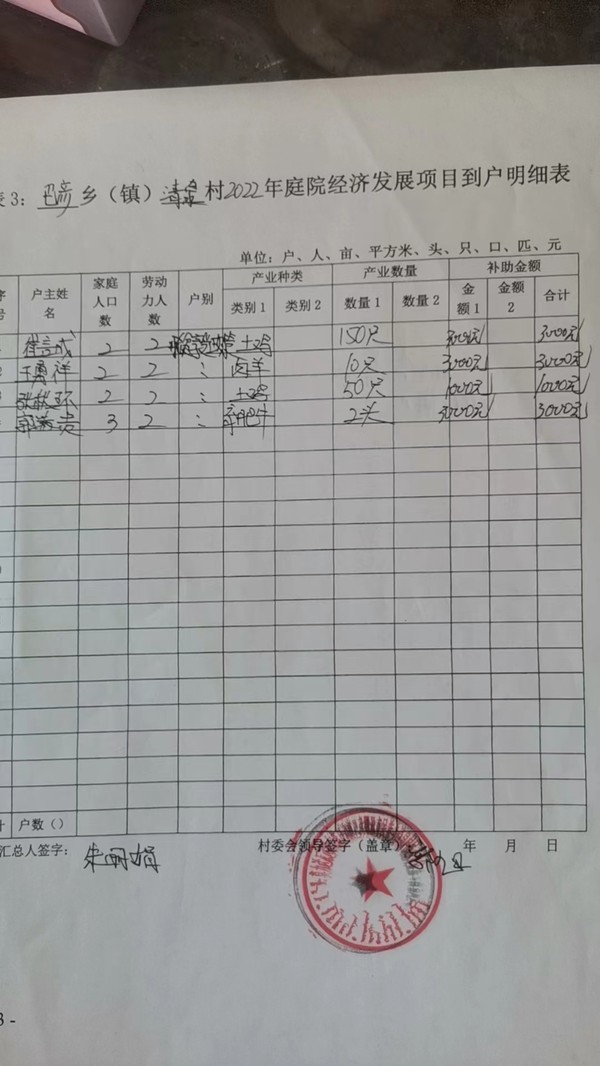 表3：巴彦乡（镇）清泉村2022年庭院经济发展项目到户明细表
单位：户、人、亩、平方米、头、只、口、匹、元
序号 户主姓名 家庭人口数 劳动力人数 户别 产业种类 产业数量 补助金额
类别1 类别2 数量1 数量2 金额1 金额2 合计
2 2 土鸡 150只 3000元 3000元
王勇祥 2 2 : 肉羊 10只 3000元 3000元
2 2 : 土鸡 50只 1000元 1000元
3 2 : 育肥牛 2头 3000元 3000元
计 户数（）
汇总人签字： 村委会领导签字（盖章） 年 月 日
3 -